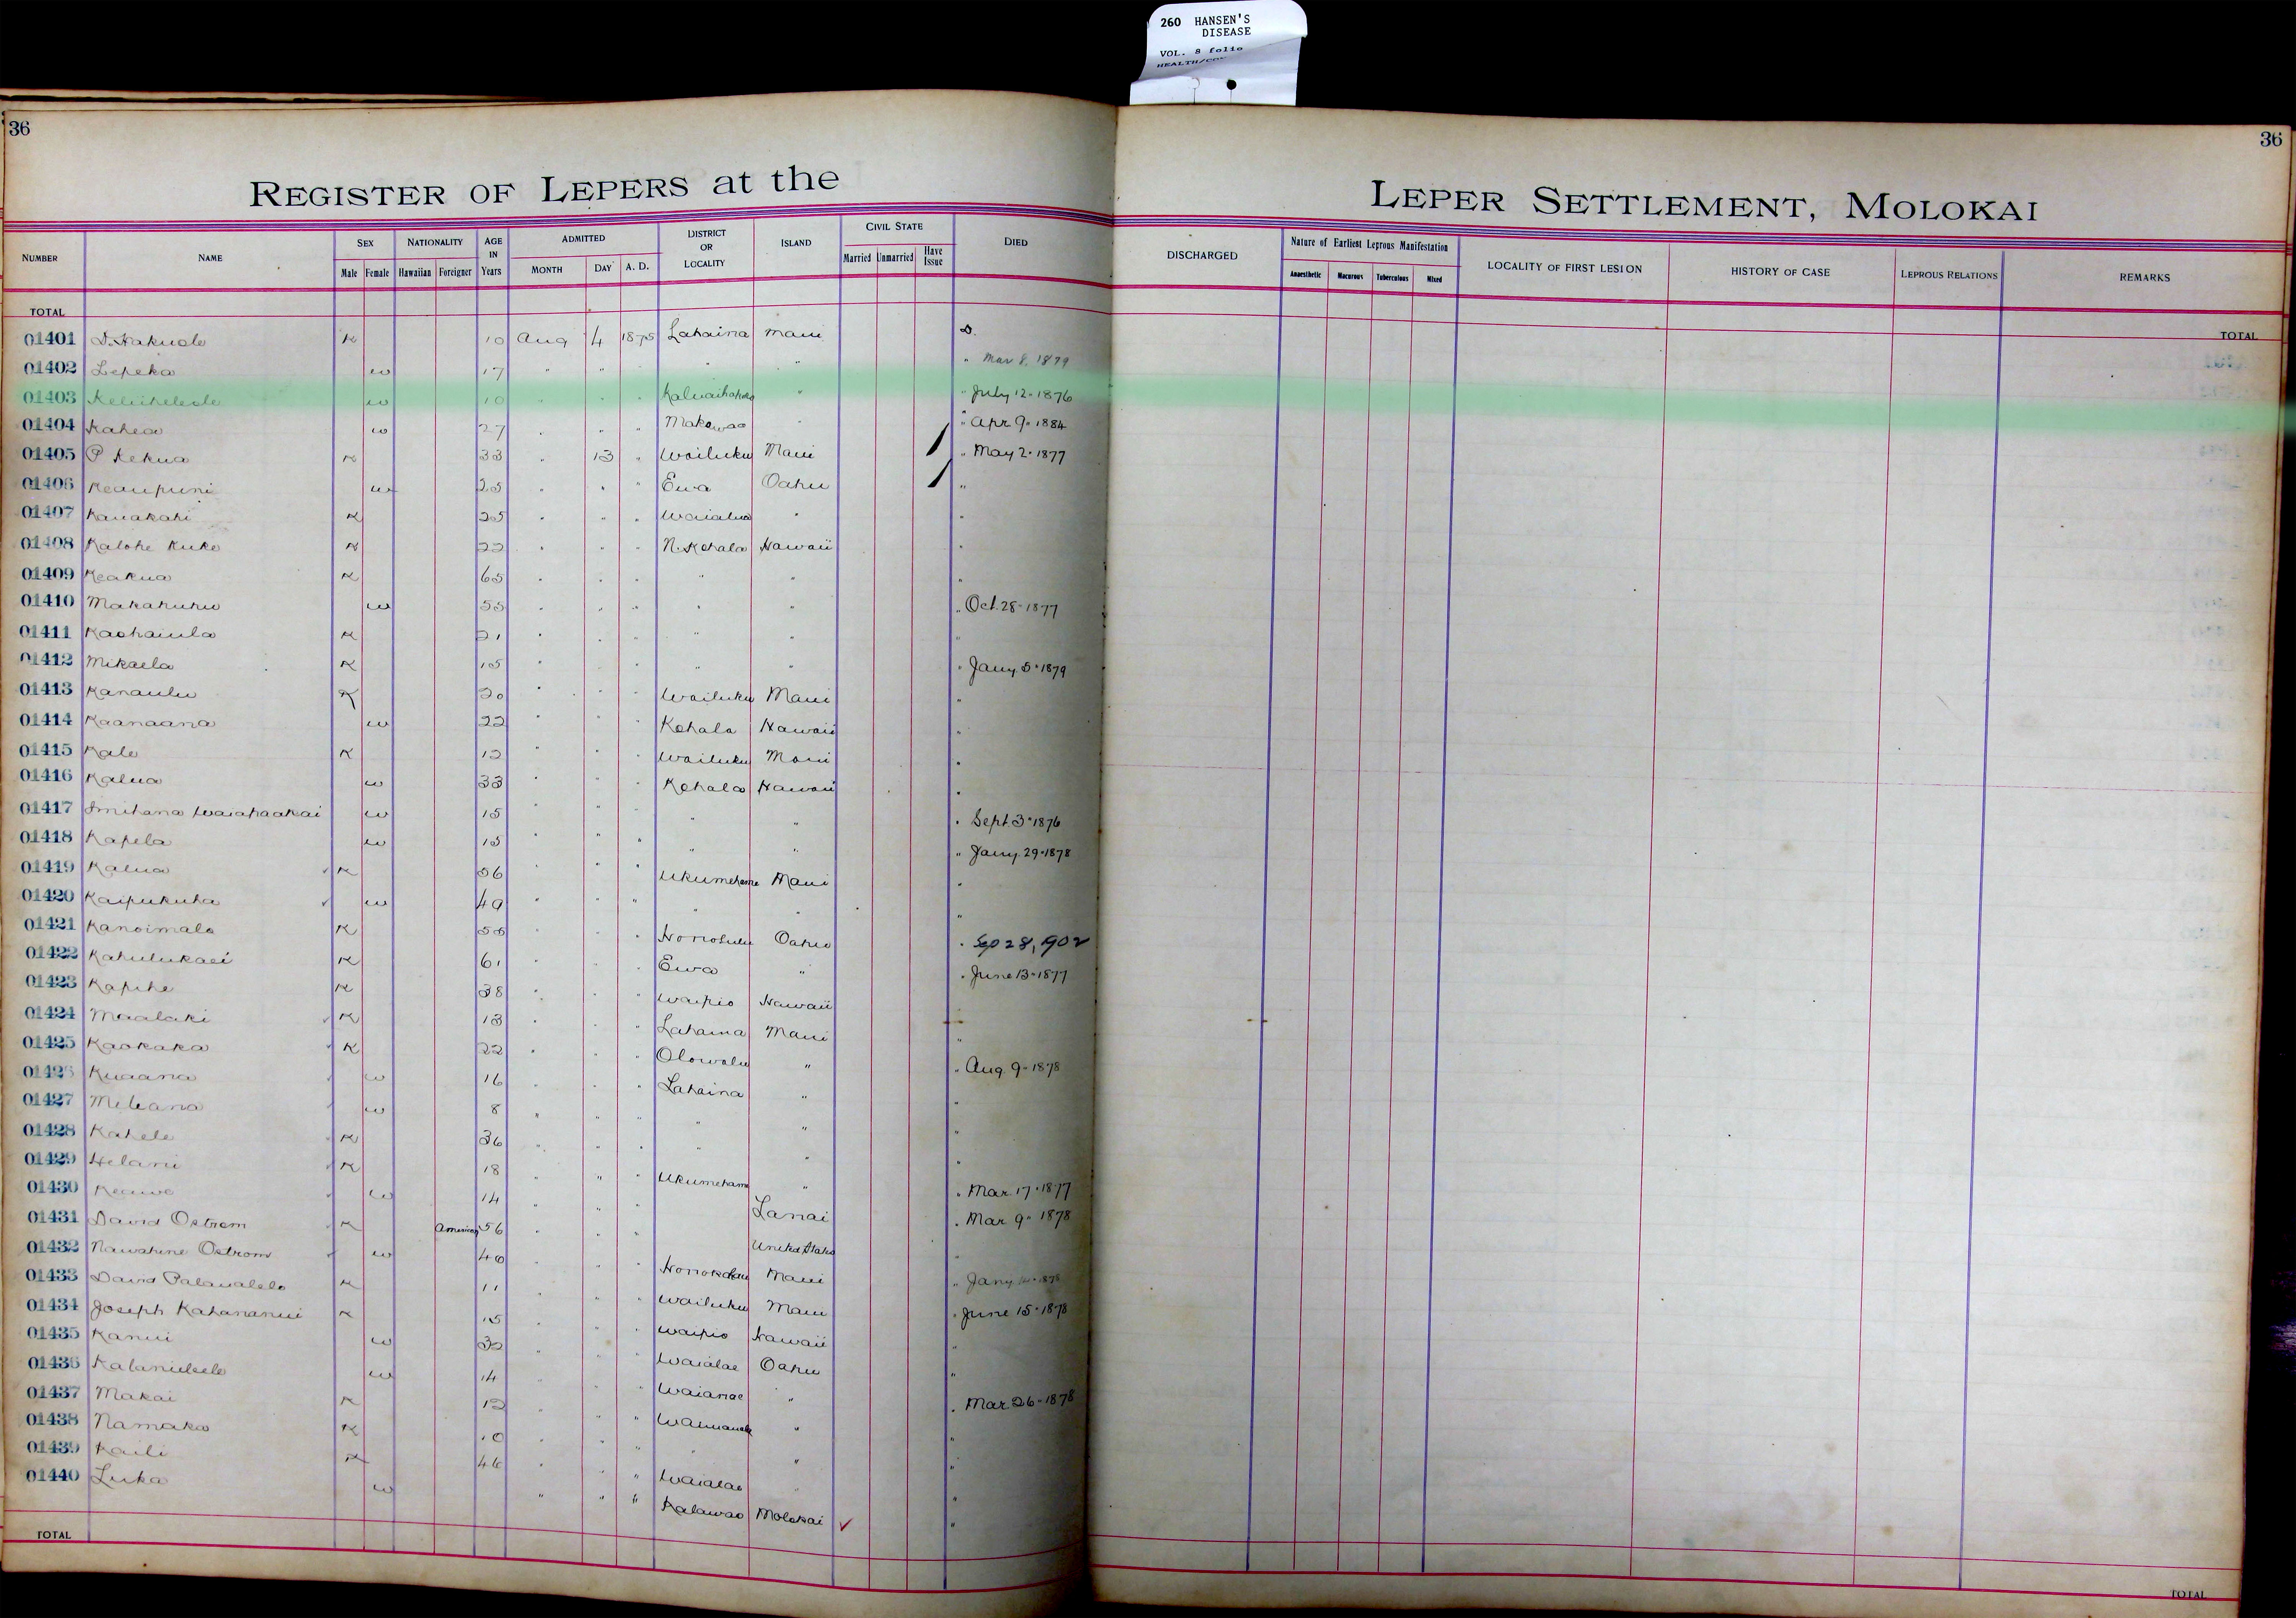 260 HANSEN'S
DISEASE
VOL. 8 folio
36
36
REGISTER OF LEPERS at the
LEPER SETTLEMENT, MOLOKAI
NUMBER NAME SEX NATIONALITY AGE IN Years ADMITTED DISTRICT OR LOCALITY ISLAND CIVIL STATE DIED DISCHARGED Nature of Earliest Leprous Manifestation LOCALITY OF FIRST LESION HISTORY OF CASE LEPROUS RELATIONS REMARKS
Male Female Hawaiian Foreigner MONTH DAY A. D. Married Unmarried Have Issue Anaesthetic Macurous Tuberculous Mixed
TOTAL TOTAL
01401 D. Hakuole K 10 Aug 4 1875 Lahaina Maui D.
01402 Lepeka w 17 " " " " " " Mar 8, 1879
01403 w 10 " " " " " July 12-1876
01404 Kahea w 27 " " " Makawao " " Apr 9-1884
01405 P Kekua K 33 " 13 " Wailuku Maui / " May 2-1877
01406 Keaupuni w 25 " " " Ewa Oahu / "
01407 Kauakahi K 25 " " " Waialua " "
01408 Kalohe Kuke K 22 " " " N. Kohala Hawaii "
01409 Keakua K 65 " " " " " "
01410 Makahuhu w 55 " " " " " " Oct. 28-1877
01411 Kaohaiula K 21 " " " " " "
01412 Mikaela K 15 " " " " " " Jany. 5-1879
01413 Kanaulu K 20 " " " Wailuku Maui "
01414 Kaanaana w 22 " " " Kohala Hawaii "
01415 Kale K 12 " " " Wailuku Maui "
01416 Kalua w 33 " " " Kohala Hawaii "
01417 w 15 " " " " " " Sept. 3-1876
01418 Kapela w 15 " " " " " " Jany. 29-1878
01419 Kalua K 56 " " " Ukumehame Maui "
01420 Kaipukuha w 49 " " " " " "
01421 Kanoimalo K 55 " " " Honolulu Oahu " Sep 28, 1902
01422 Kahulukaei K 61 " " " Ewa " " June 13-1877
01423 Kapihe K 38 " " " Waipio Hawaii
01424 Maalaki K 13 " " " Lahaina Maui "
01425 Kaokaka K 22 " " " Olowalu " " Aug. 9-1878
01426 Kuaana w 16 " " " Lahaina " "
01427 Meleana w 8 " " " " " "
01428 Kahele K 36 " " " " " "
01429 Helani K 18 " " " Ukumehame " " Mar. 17-1877
01430 Keawe w 14 " " " Lanai " Mar. 9-1878
01431 David Ostrom K American 56 " " " United States "
01432 Nawahine Ostrom w 40 " " " Honokohau Maui " Jany.
01433 David Palaualelo K 11 " " " Wailuku Maui " June 15-1878
01434 Joseph Kahananui K 15 " " " Waipio Hawaii "
01435 Kanui w 32 " " " Waialae Oahu "
01436 w 14 " " " Waianae " " Mar. 26-1878
01437 Makai K 12 " " " " "
01438 Namaka K 10 " " " " " "
01439 Kaili K 46 " " " Waialae " "
01440 Luka w " " " Kalawao Molokai ✓ "
TOTAL TOTAL